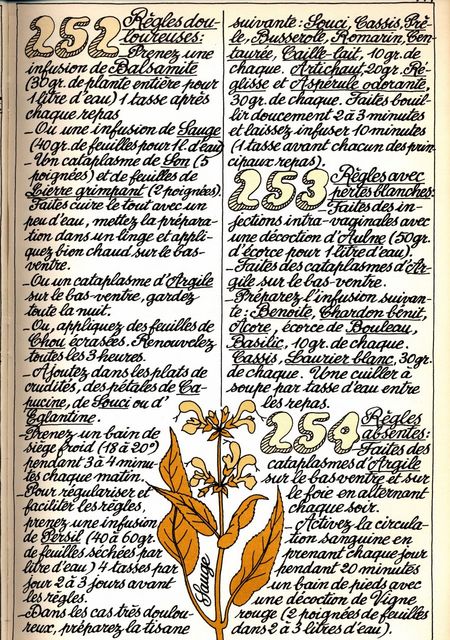 252 Règles dou-
loureuses:
Prenez une
infusion de Balsamite
(30gr. de plante entière pour
1 litre d'eau) 1 tasse après
chaque repas
_Ou une infusion de Sauge
(40gr. de feuilles pour 1l. d'eau)
_Un cataplasme de Son (5
poignées) et de feuilles de
Lierre grimpant (2 poignées).
Faites cuire le tout avec un
peu d'eau, mettez la prépara-
tion dans un linge et appli-
quez bien chaud sur le bas-
ventre.
_Ou un cataplasme d'Argile
sur le bas-ventre, gardez
toute la nuit.
_Ou, appliquez des feuilles de
Chou écrasées. Renouvelez
toutes les 3 heures.
_Ajoutez dans les plats de
crudités, des pétales de Ca-
pucine, de Souci ou d'
Eglantine.
_Prenez un bain de
siège froid (18 à 20°)
pendant 3 à 4 minu-
tes chaque matin.
_Pour régulariser et
faciliter les règles,
prenez une infusion
de Persil (40 à 60gr.
de feuilles séchées par
litre d'eau) 4 tasses par
jour 2 à 3 jours avant
les règles.
_Dans les cas très doulou-
reux, préparez la tisane
Sauge
suivante: Souci, Cassis, Prê-
le, Busserole, Romarin, Cen-
taurée, Caille-lait, 10 gr. de
chaque. Artichaut, 20gr. Ré-
glisse et Aspérule odorante,
30gr. de chaque. Faites bouil-
lir doucement 2 à 3 minutes
et laissez infuser 10 minutes
(1 tasse avant chacun des prin-
cipaux repas).
253 Règles avec
pertes blanches:
_Faites des in-
jections intra-vaginales avec
une décoction d'Aulne (50gr.
d'écorce pour 1 litre d'eau).
_Faites des cataplasmes d'Ar-
gile sur le bas-ventre.
_Préparez l'infusion suivan-
te: Benoite, Chardon benit,
Acore, écorce de Bouleau,
Basilic, 10gr. de chaque.
Cassis, Laurier blanc, 30gr.
de chaque. Une cuiller à
soupe par tasse d'eau entre
les repas.
254 Règles
absentes:
_Faites des
cataplasmes d'Argile
sur le bas ventre et sur
le foie en alternant
chaque soir.
_Activez la circula-
tion sanguine en
prenant chaque jour
pendant 20 minutes
un bain de pieds avec
une décoction de Vigne
rouge (2 poignées de feuilles
dans 2 à 3 litres d'eau).